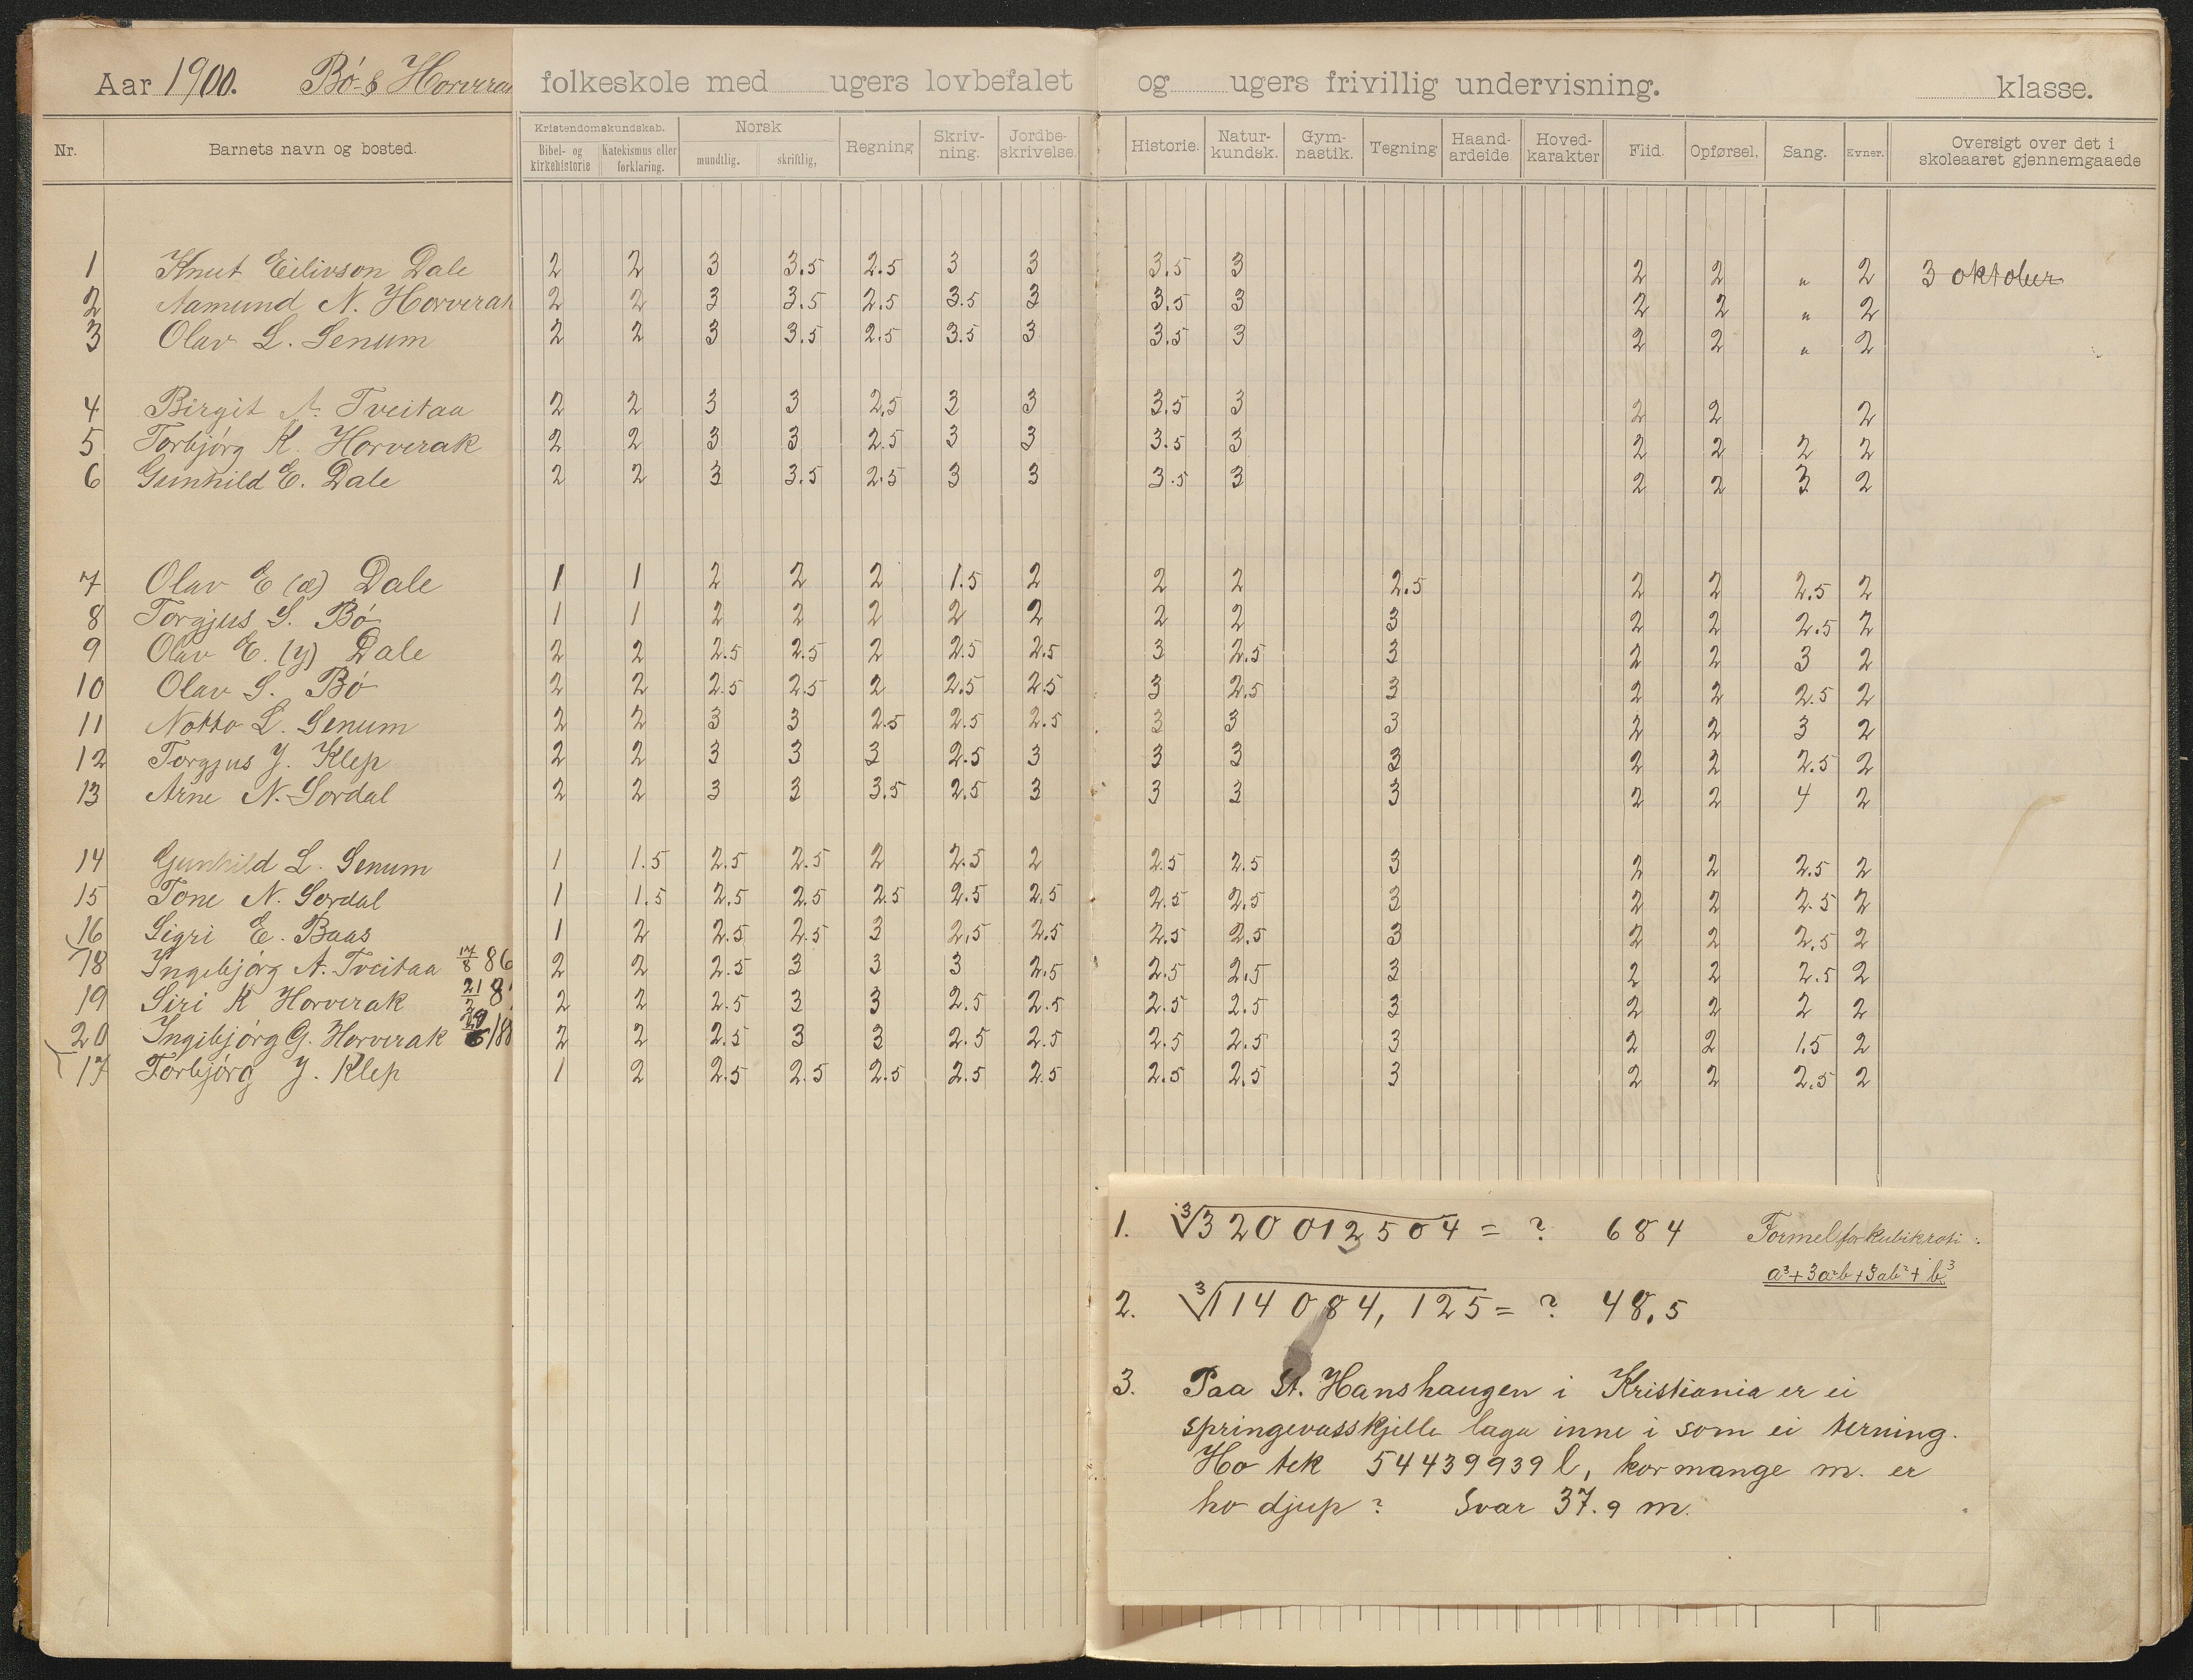 Aar 1900. Bö & Horverak folkeskole med ugers lovbefalet og ugers frivillig undervisning. klasse.
Nr. Barnets navn og bosted. Kristendomskundskab. Bibel- og kirkehistorie Katekismus eller forklaring. Norsk mundtlig. skriftlig, Regning Skriv-ning. Jordbe-skrivelse. Historie. Natur-kundsk. Gym-nastik. Tegning Haand-arbeide Hoved-karakter Flid. Opførsel. Sang. Evner. Oversigt over det i skoleaaret gjennemgaaede
1 Knut Eilivson Dale 2 2 3 3.5 2.5 3 3 3.5 3 2 2 " 2 3 oktober
2 Aamund N. Horverak 2 2 3 3.5 2.5 3.5 3 3.5 3 2 2 " 2
3 Olav L. Senum 2 2 3 3.5 2.5 3.5 3 3.5 3 2 2 " 2
4 Birgit A. Tveitaa 2 2 3 3 2,5 3 3 3.5 3 2 2 2
5 Torbjörg K. Horverak 2 2 3 3 2.5 3 3 3.5 3 2 2 2 2
6 Gunhild E. Dale 2 2 3 3.5 2.5 3 3 3.5 3 2 2 3 2
7 Olav E (æ) Dale 1 1 2 2 2 1.5 2 2 2 2.5 2 2 2.5 2
8 Torgjus S. Bö 1 1 2 2 2 2 2 2 2 3 2 2 2.5 2
9 Olav E. (y) Dale 2 2 2.5 2.5 2 2.5 2.5 3 2.5 3 2 2 3 2
10 Olav S. Bö 2 2 2.5 2.5 2 2.5 2.5 3 2.5 3 2 2 2.5 2
11 Notto L. Senum 2 2 3 3 2.5 2.5 2.5 3 3 3 2 2 3 2
12 Torgjus J. Klep 2 2 3 3 3 2.5 3 3 3 3 2 2 2.5 2
13 Arne N. Sordal 2 2 3 3 3.5 2.5 3 3 3 3 2 2 4 2
14 Gunhild L. Senum 1 1.5 2.5 2.5 2 2.5 2 2.5 2.5 3 2 2 2.5 2
15 Tone N. Sordal 1 1.5 2.5 2.5 2.5 2.5 2.5 2.5 2.5 3 2 2 2.5 2
16 Sigri E. Baas 1 2 2.5 2.5 3 2,5 2.5 2.5 2.5 3 2 2 2.5 2
18 Ingebjörg A. Tveitaa 17/8 86 2 2 2.5 3 3 3 2.5 2.5 2.5 3 2 2 2.5 2
19 Siri K Horverak 21/2 8 2 2 2.5 3 3 2.5 2.5 2.5 2.5 3 2 2 2 2
20 Ingibjörg G. Horverak 29/6 188 2 2 2.5 3 3 2.5 2.5 2.5 2.5 3 2 2 1.5 2
17 Torbjörg J. Klep 1 2 2.5 2.5 2.5 2.5 2.5 2.5 2.5 3 2 2 2.5 2
1. ∛320 012 504 = ? 684 Formel for kubikrot:
a³+3a²b+3ab²+b³
2. ∛114 084, 125 = ? 48,5
3. Paa St. Hanshaugen i Kristiania er ei
springevasskjelle laga inne i som ei terning.
Ho tek 54439939 l, kor mange m. er
ho djup? Svar 37.9 m.